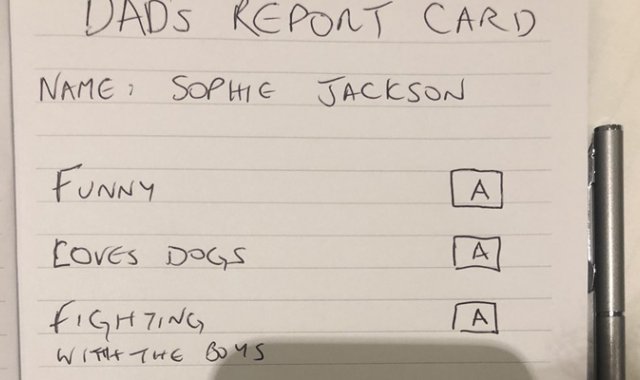 DAD'S REPORT CARD
NAME: SOPHIE JACKSON
FUNNY A
LOVES DOGS A
FIGHTING A
WITH THE BOYS